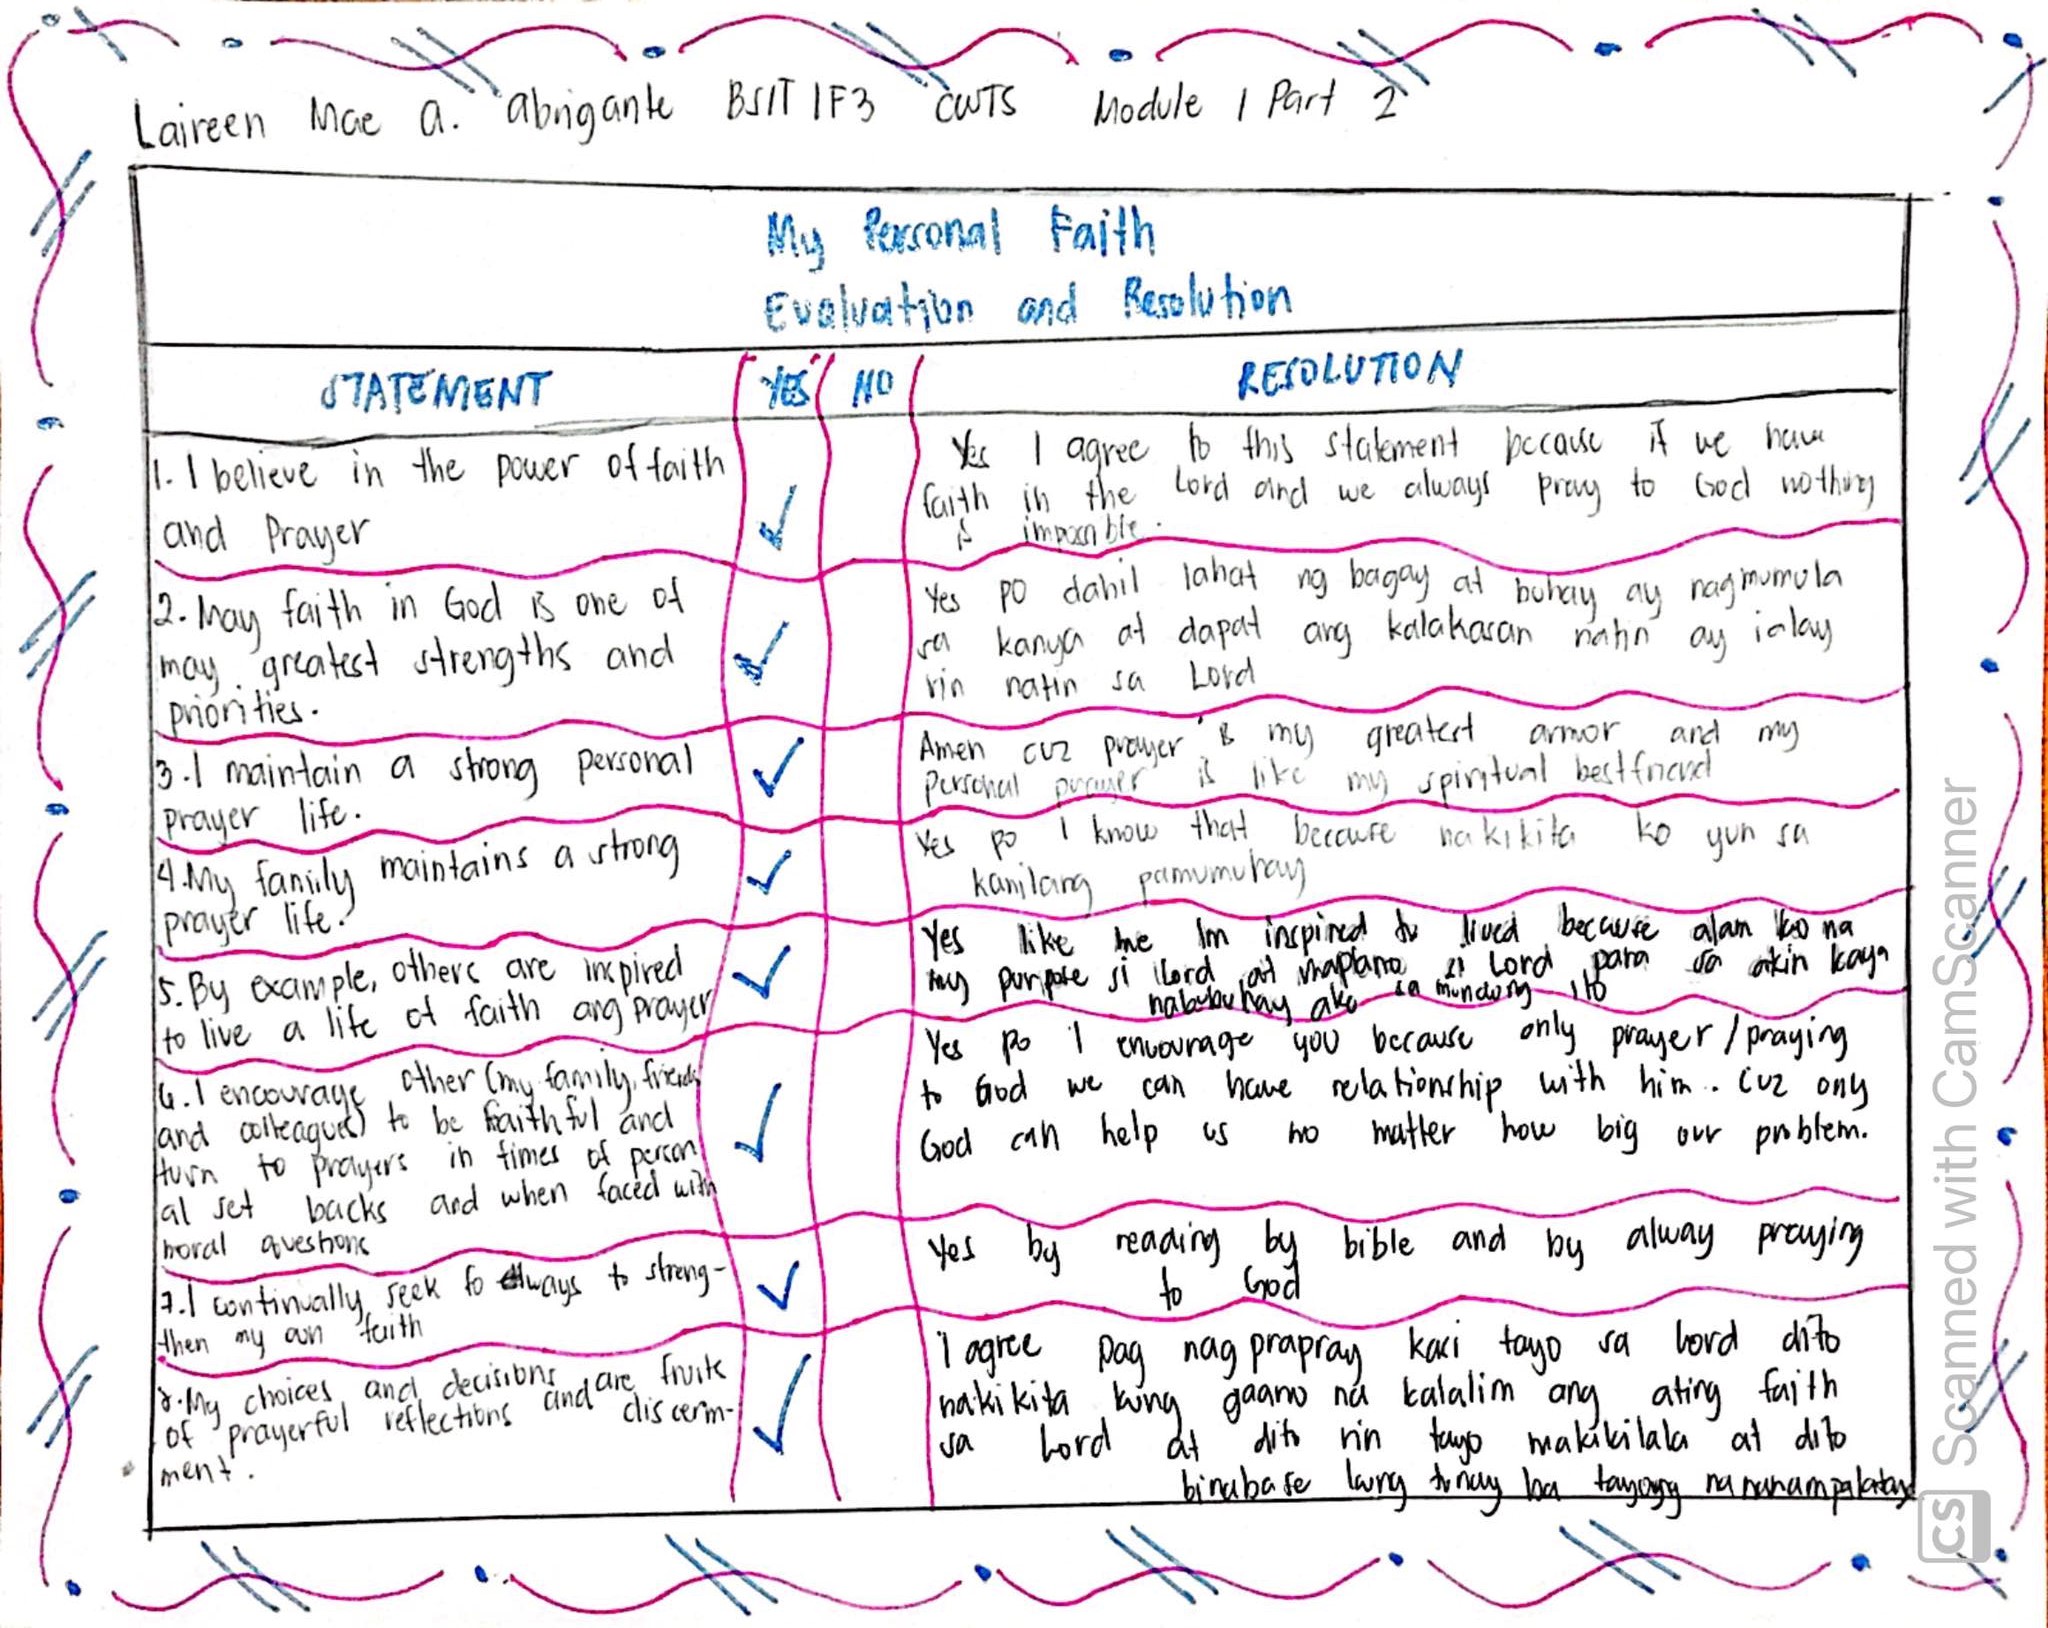 Laireen Mae A. Abrigante BSIT 1F3 CWTS Module 1 Part 2
My Personal Faith
Evaluation and Resolution
STATEMENT YES NO RESOLUTION
1. I believe in the power of faith
and Prayer
Yes I agree to this statement because if we have
faith in the Lord and we always pray to God nothing
is impossible.
2. May faith in God is one of
may greatest strengths and
priorities.
Yes po dahil lahat ng bagay at buhay ay nagmumula
sa kanya at dapat ang kalakasan natin ay ialay
rin natin sa Lord
3. I maintain a strong personal
prayer life.
Amen cuz prayer is my greatest armor and my
Personal prayer is like my spiritual bestfriend
4. My family maintains a strong
prayer life.
Yes po I know that because nakikita ko yun sa
kanilang pamumuhay
5. By example, others are inspired
to live a life of faith ang prayer
Yes like me Im inspired to lived because alam ko na
my puripose si Lord at maplano si Lord para sa akin kaya
nabubuhay ako sa mundong ito
6. I encourage other (my family, friends
and colleagues) to be Faithful and
turn to prayers in times of person
al set backs and when faced with
moral questions
Yes po I encourage you because only prayer / praying
to God we can have relationship with him.. Cuz only
God can help us no matter how big our problem.
7. I continually seek fo always to streng-
then my own faith
Yes by reading by bible and by alway praying
to God
8. My choices and decisions and are fruits
of prayerful reflections and discernm-
ment.
I agree pag nag prapray kasi tayo sa Lord dito
nakikita kung gaano na kalalim ang ating faith
sa Lord at dito rin tayo makikilala at dito
binabase kung tunay ba tayong na nanampalataya
CS Scanned with CamScanner